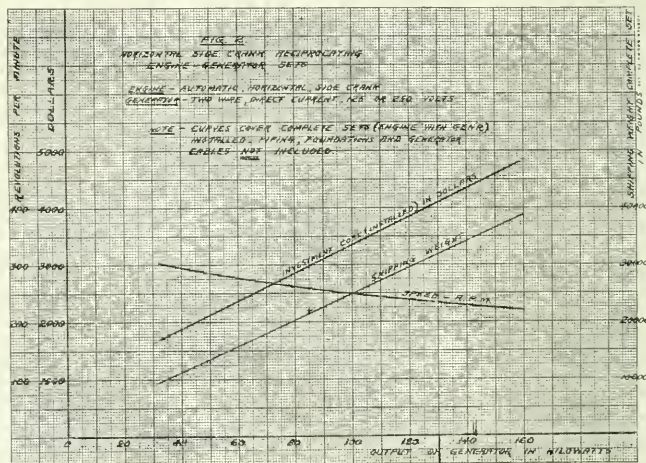 FIG 2
HORIZONTAL SIDE CRANK RECIPROCATING
ENGINE-GENERATOR SETS
ENGINE - AUTOMATIC, HORIZONTAL, SIDE CRANK
GENERATOR - TWO WIRE, DIRECT CURRENT, 125 OR 250 VOLTS
NOTE - CURVES COVER COMPLETE SETS (ENGINE WITH GEN'R)
INSTALLED - PIPING, FOUNDATIONS AND GENERATOR
CABLES NOT INCLUDED.
REVOLUTIONS PER MINUTE
DOLLARS
SHIPPING WEIGHT COMPLETE SET
IN POUNDS
5000
400 4000 40000
300 3000 30000
200 2000 20000
100 1000 10000
INVESTMENT COST (INSTALLED) IN DOLLARS
SHIPPING WEIGHT
SPEED - R.P.M.
0 20 40 60 80 100 120 140 160
OUTPUT OF GENERATOR IN KILOWATTS